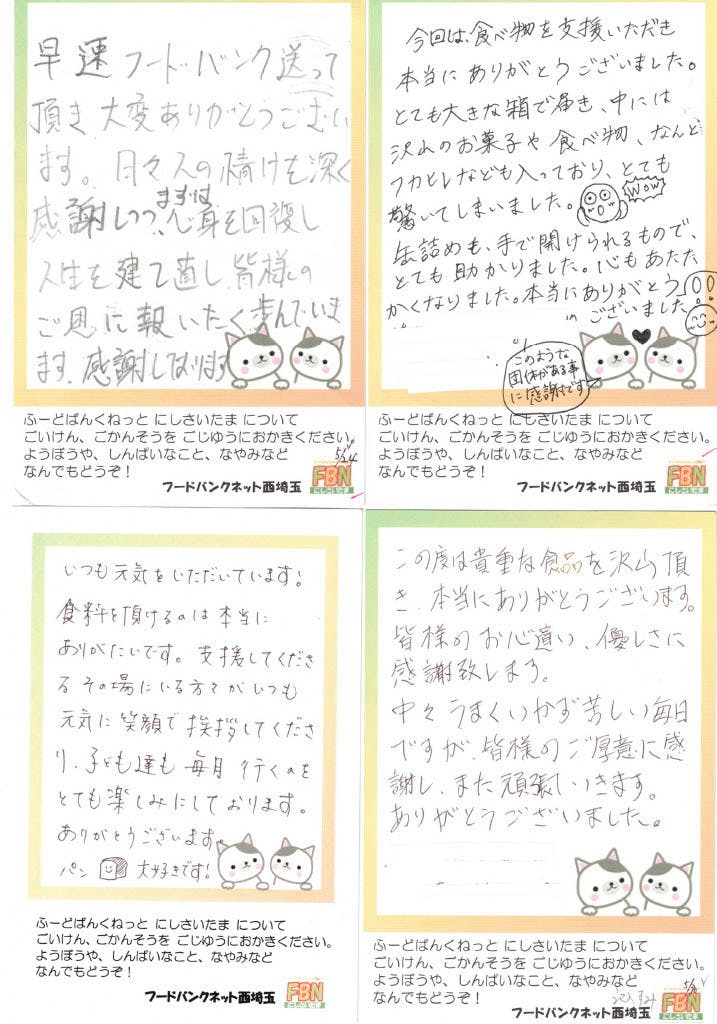 早速フードバンク送って
頂き大変ありがとうござい
ます。日々人の情けを深く
感謝しつつ、まずは心身を回復し
人生を建て直し皆様の
ご恩に報いたく歩んでいき
ます、感謝しております
ふーどばんくねっと にしさいたま について
ごいけん、ごかんそうを ごじゆうにおかきください。
ようぼうや、しんぱいなこと、なやみなど
なんでもどうぞ！
5/24
フードバンクネット西埼玉
FBN
にしさいたま
今回は、食べ物を支援いただき
本当にありがとうございました。
とても大きな箱で届き、中には
沢山のお菓子や食べ物、なんと
フカヒレなども入っており、とても
驚いてしまいました。
WOW
缶詰めも、手で開けられるもので、
とても助かりました。心もあたた
かくなりました。本当にありがとう
ございました。
このような
団体がある事
に感謝です
ふーどばんくねっと にしさいたま について
ごいけん、ごかんそうを ごじゆうにおかきください。
ようぼうや、しんぱいなこと、なやみなど
なんでもどうぞ！
フードバンクネット西埼玉
FBN
にしさいたま
いつも元気をいただいています！
食料を頂けるのは本当に
ありがたいです。支援してくださ
るその場にいる方々がいつも
元気に笑顔で挨拶してくださ
り、子ども達も毎月行くのを
とても楽しみにしております。
ありがとうございます。
パン 大好きです！
ふーどばんくねっと にしさいたま について
ごいけん、ごかんそうを ごじゆうにおかきください。
ようぼうや、しんぱいなこと、なやみなど
なんでもどうぞ！
フードバンクネット西埼玉
FBN
にしさいたま
この度は貴重な食品を沢山頂
き、本当にありがとうございます。
皆様のお心遣い、優しさに
感謝致します。
中々うまくいかず苦しい毎日
ですが、皆様のご厚意に感
謝し、また頑張っていきます。
ありがとうございました。
ふーどばんくねっと にしさいたま について
ごいけん、ごかんそうを ごじゆうにおかきください。
ようぼうや、しんぱいなこと、なやみなど
なんでもどうぞ！
フードバンクネット西埼玉
FBN
にしさいたま